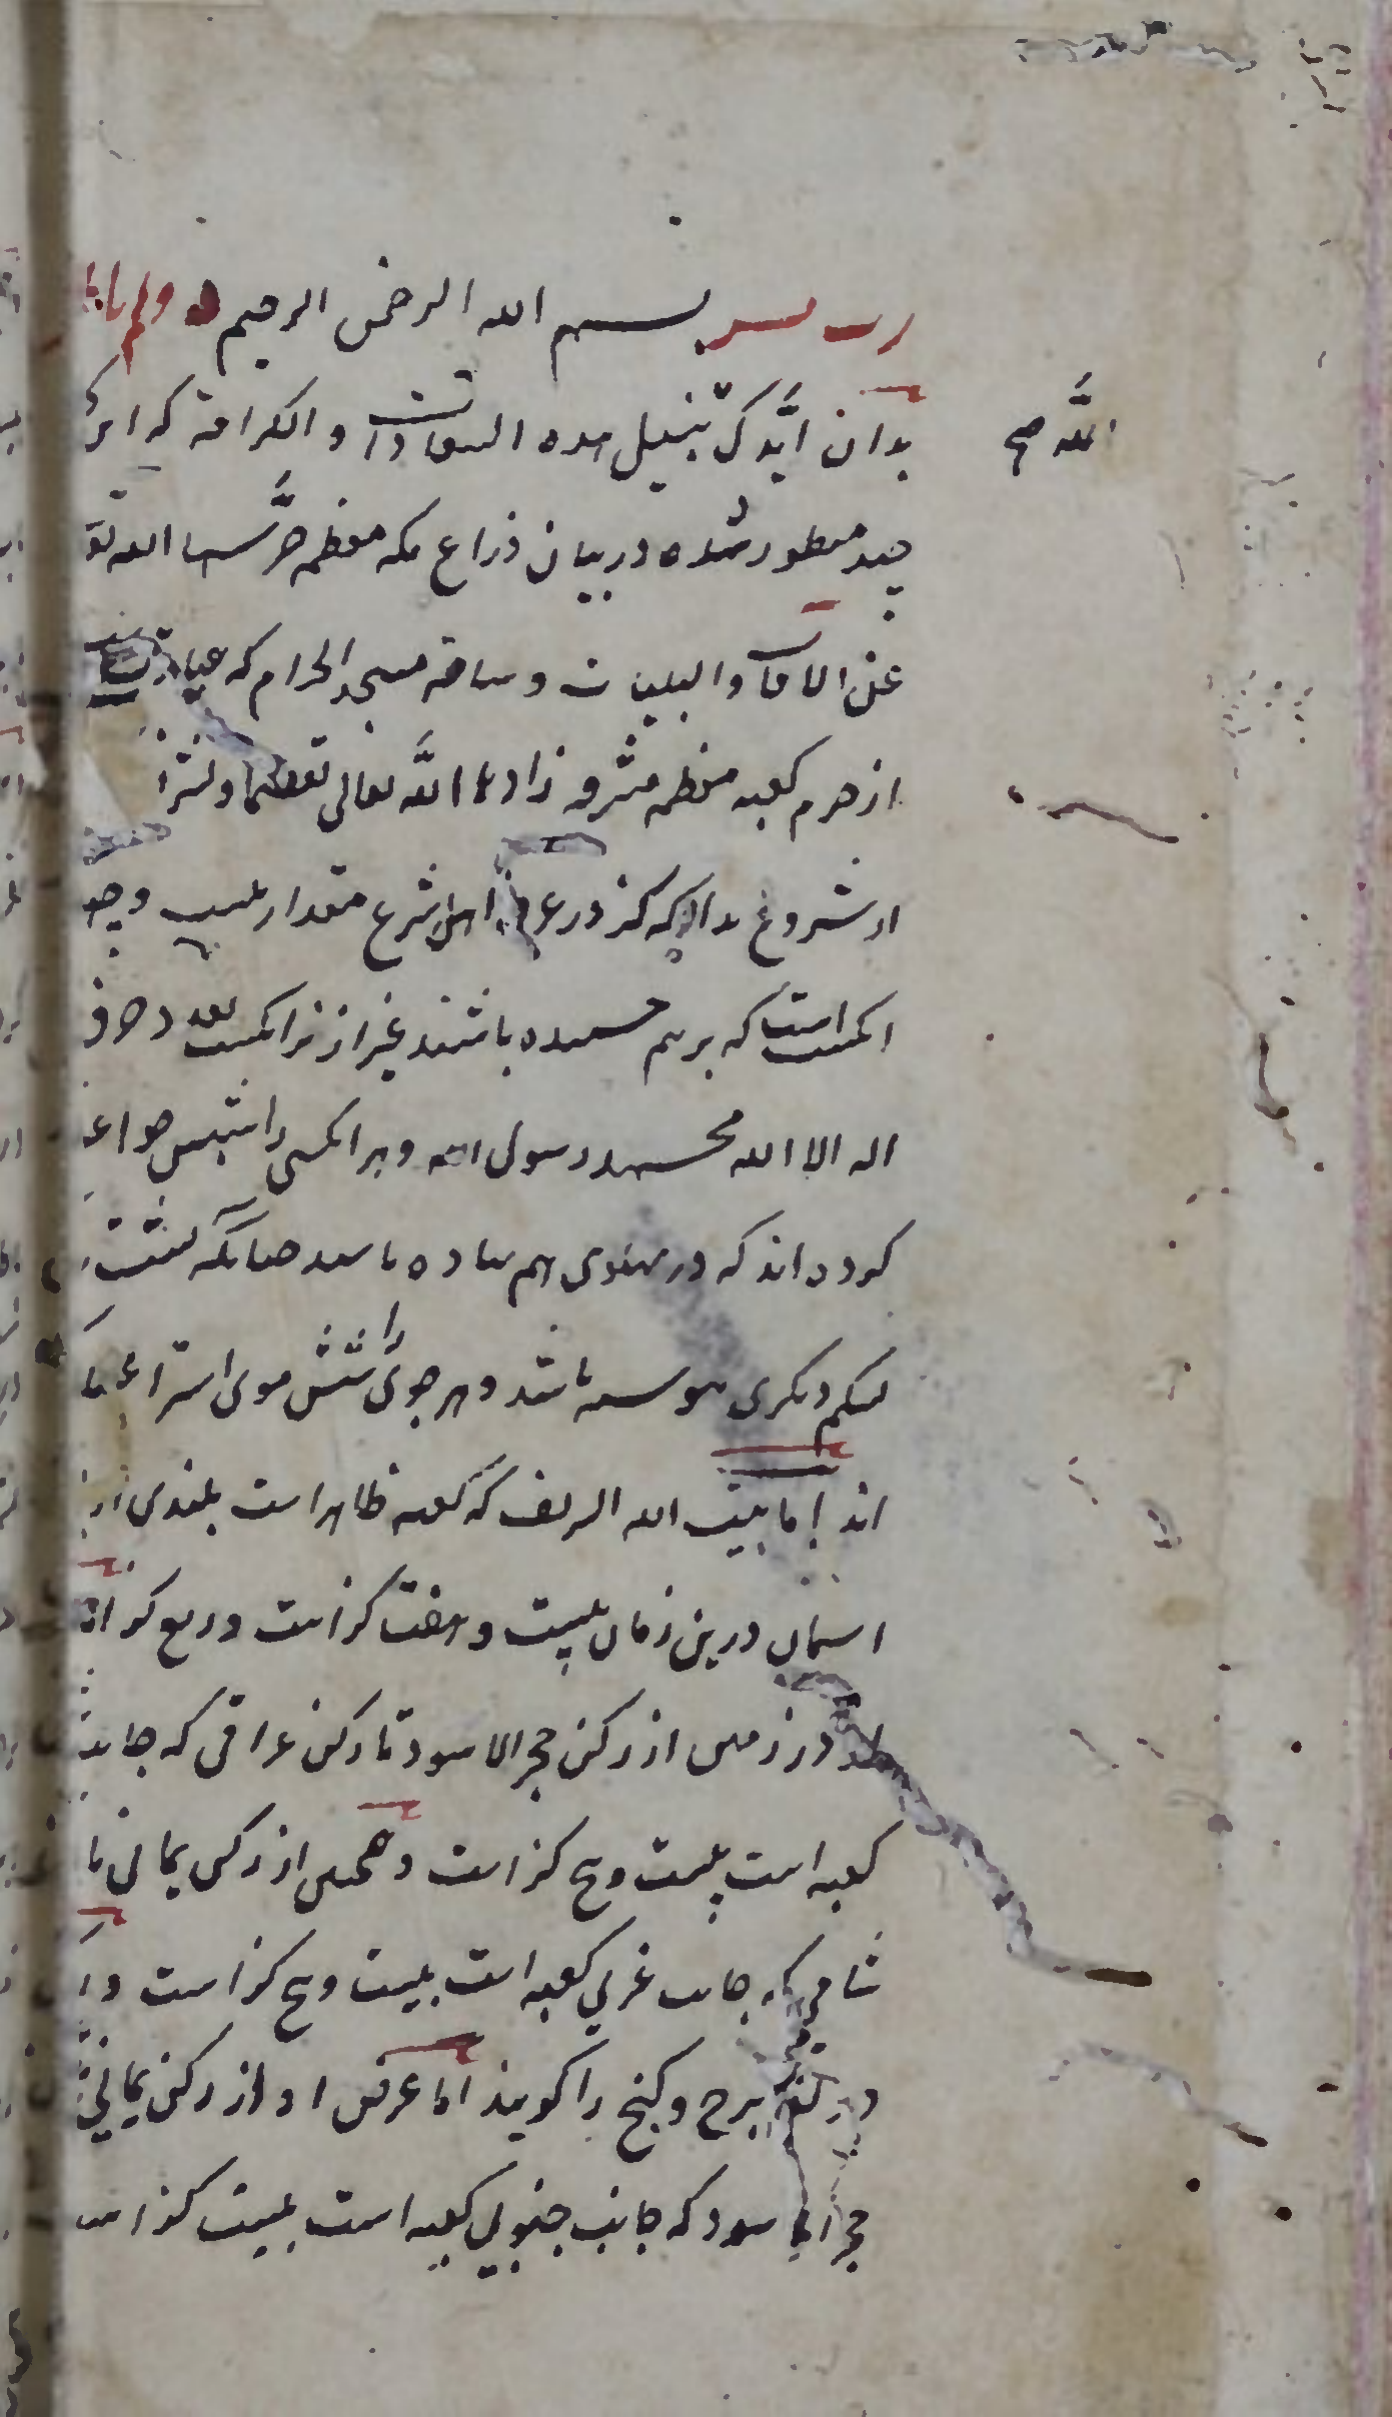 رب یسر بسم الله الرحمن الرحیم
بدان ایدک بنیل هده السعادات والکرامة که این
الله صح
چند سطور شده در بیان ذراع مکه معظمه حرسها الله تع
عن الافات والبلیات و ساحة مسجد الحرام که عبارتست
از حرم کعبه معظمه مشرفه زادها الله تعالی تعظیما و تشر
شروع بدانکه گز در عرف اهل شرع مقدار بیست و چها
انگشت است که برهم چسبیده باشند غیر از نر انگشت بعدد حروف
اله الا الله محمد رسول الله و هر انگشتی را شش جو اعتـ
کرده اند که در پهلوی هم نهاده باشند چنانکه پشت
شکم دیگری پیوسته باشد و هر جوی را شش موی استر اعتبا
اند اما بیت الله الشریف که کعبه ظاهر است بلندی او
اسمان درین زمان بیست و هفت گز است و ربع گز اما
در زمین از رکن حجر الاسود تا رکن عراقی که جانب
کعبه است بیست و پنج گز است و همچنین از رکن یمانی تا
شامی که جانب غربی کعبه است بیست و پنج گز است و
برج و کنج را گویند اما عرض او از رکن یمانی
حجر الاسود که جانب جنوبی کعبه است بیست گز است